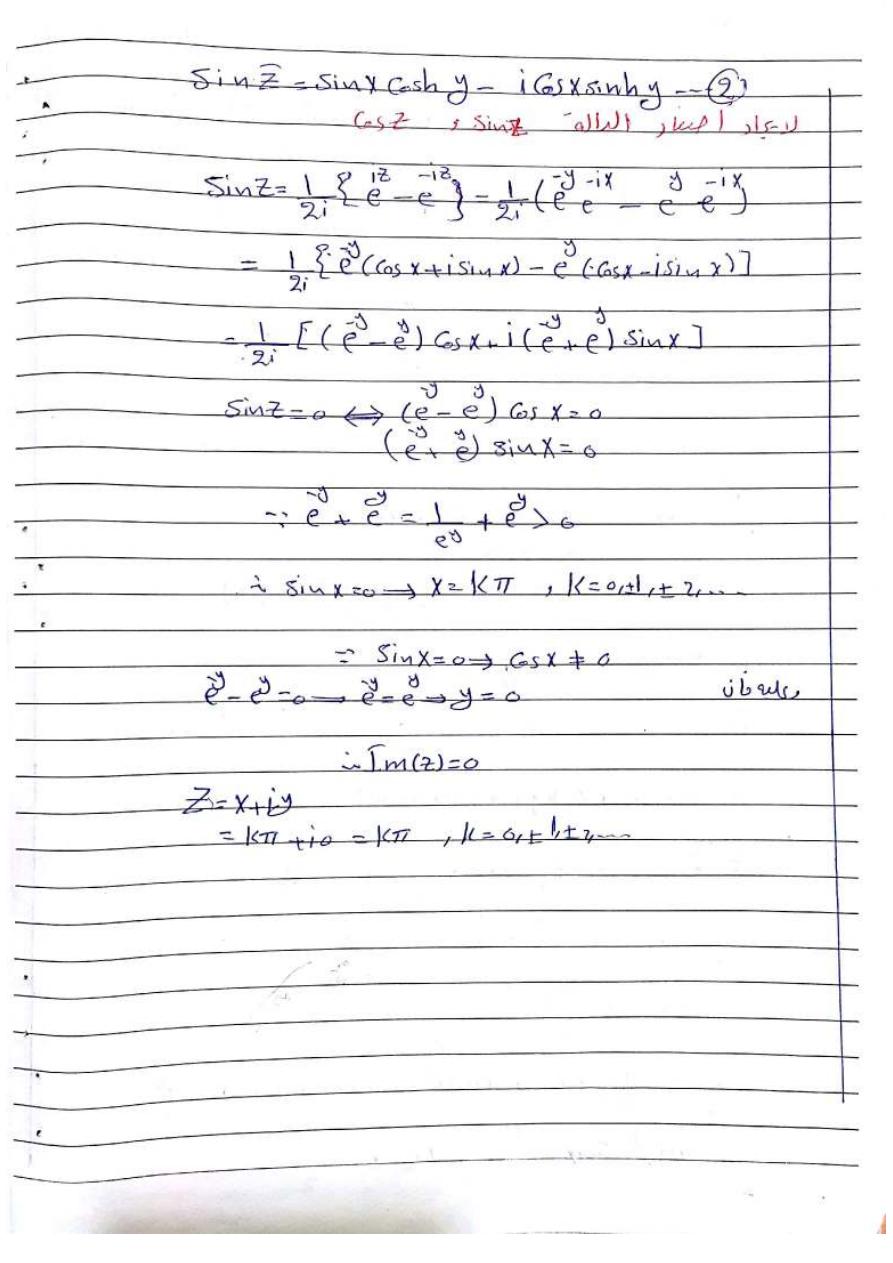 Sin z̄ = Sinx Cosh y - i Cosx sinh y --②
لايجاد أصفار الدالة Sinz و Cosz
Sinz = 1/2i { e^{iz} - e^{-iz} } = 1/2i ( e^{-y} e^{-ix} - e^{y} e^{-ix} )
= 1/2i { e^{-y} (Cosx + iSinx) - e^{y} (Cosx - iSinx) ]
= 1/2i [ ( e^{-y} - e^{y} ) Cosx + i ( e^{-y} + e^{y} ) Sinx ]
Sinz = 0 ⟺ ( e^{-y} - e^{y} ) Cos x = 0
( e^{-y} + e^{y} ) sinx = 0
∵ e^{-y} + e^{y} = 1/e^{y} + e^{y} > 0
∴ Sinx = 0 → x = kπ , k = 0, ±1, ± 2, ....
∵ Sinx = 0 → Cosx ≠ 0
وعليه فأن e^{-y} - e^{y} = 0 → e^{-y} = e^{y} → y = 0
∴ Im(z) = 0
Z = x + iy
= kπ + i0 = kπ , k = 0, ± 1, ± 2, ....